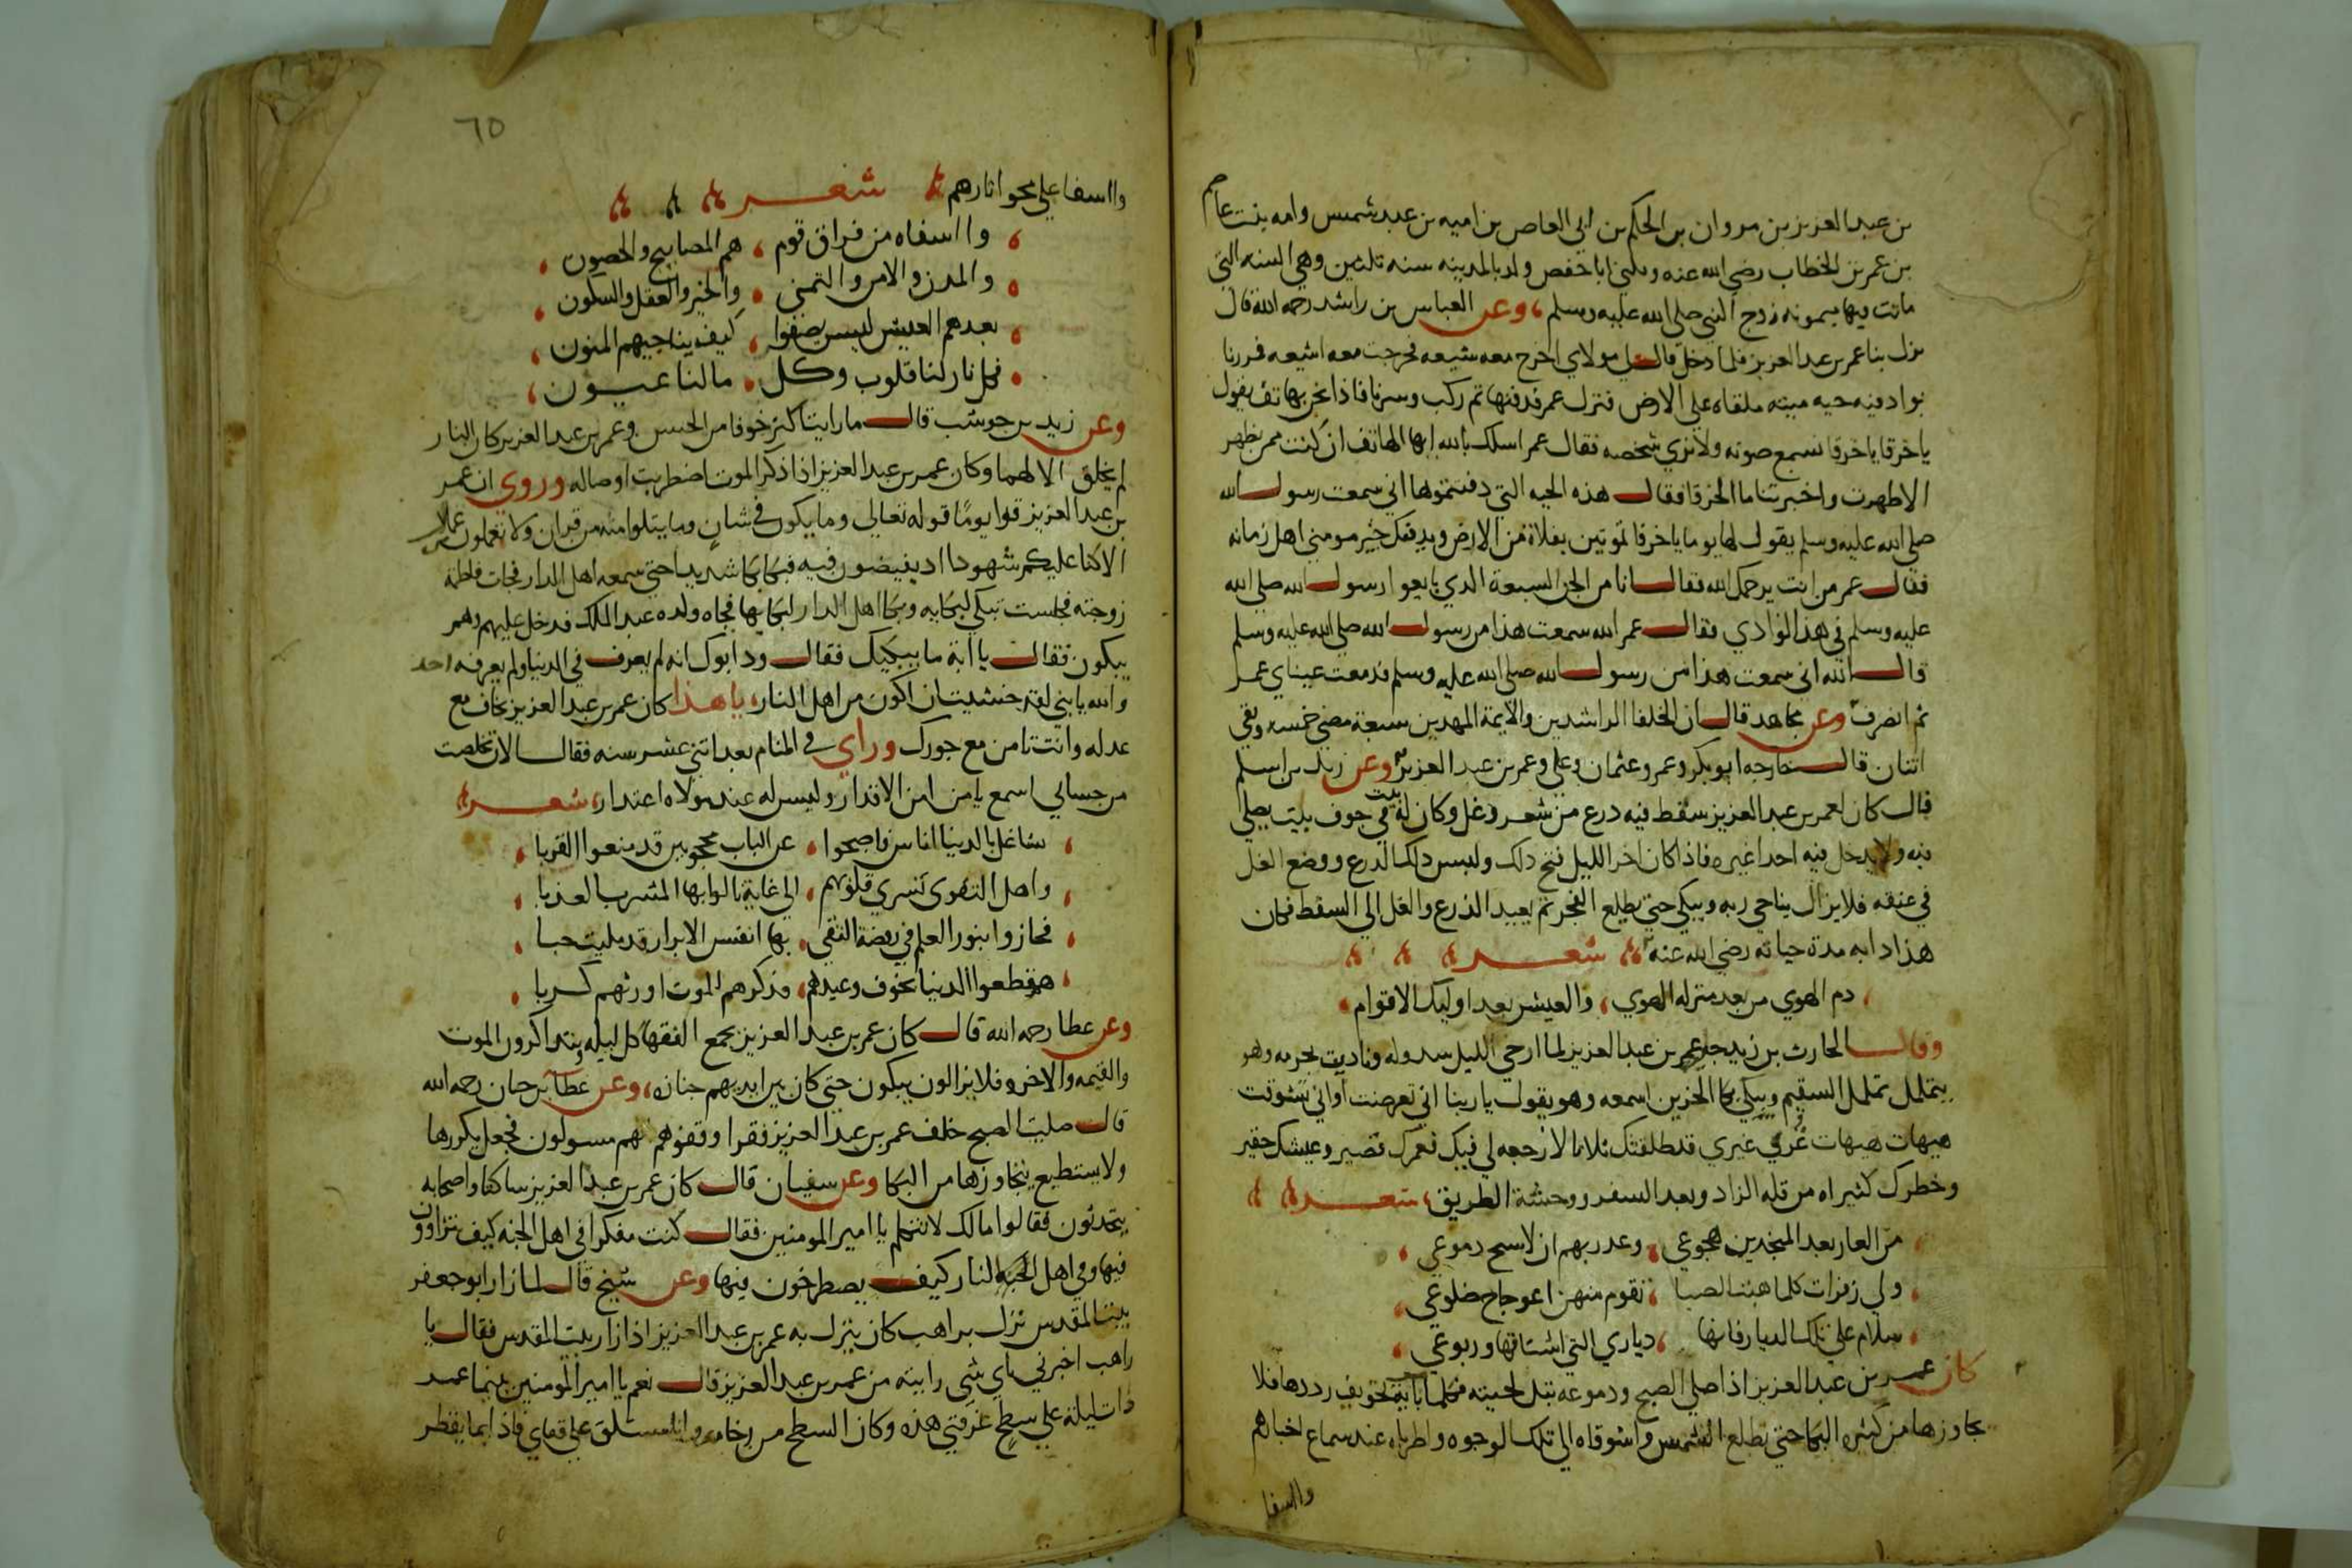 بن عبد العزيز بن مروان بن الحكم بن ابي العاص بن اميه بن عبد شمس وامه بنت عاصم
بن عمر بن الخطاب رضي الله عنه ويكنى ابا حفص ولد بالمدينه سنه ثلثين وهي السنه التي
ماتت فيها ميمونه زوج النبي صلى الله عليه وسلم وعن العباس بن راشد رحمه الله قال
نزل بنا عمر بن عبد العزيز فلما دخل قال لي مولاي اخرج معه شيعه فخرجت معه اشيعه فمررنا
بواد فيه حيه ميته ملقاه على الارض فنزل عمر فدفنها ثم ركب وسرنا فاذا نحن بهاتف يقول
ياخرقا ياخرقا نسمع صوته ولا نري شخصه فقال عمر اسلك بالله ايها الهاتف ان كنت ممن يظهر
الا ظهرت واخبرتنا ما الخرقا فقال هذه الحيه التي دفنتموها اني سمعت رسول الله
صلى الله عليه وسلم يقول لها يوما ياخرقا تموتين بفلاة من الارض ويدفنك خير مومني اهل زمانه
فقال عمر من انت يرحمك الله فقال انا من الجن السبعة الذي بايعوا رسول الله صلى الله
عليه وسلم في هذا الوادي فقال عمر الله سمعت هذا من رسول الله صلى الله عليه وسلم
قال الله اني سمعت هذا من رسول الله صلى الله عليه وسلم فدمعت عيناي عمر
ثم انصرف وعن مجاهد قال ان الخلفا الراشدين والايمة المهدين سبعة مضي خمسه وبقي
اثنان قال خارجه ابو بكر وعمر وعثمان وعلي وعمر بن عبد العزيز وعن زيد بن اسلم
قال كان لعمر بن عبد العزيز سفط فيه درع من شعر وغل وكان له بيت في جوف بيت يصلي
فيه ولا يدخل فيه احدا غيره فاذا كان اخر الليل فتح ذلك ولبس ذلك الدرع ووضع الغل
في عنقه فلا يزال يناجي ربه ويبكي حتي يطلع الفجر ثم يعيد الدرع والغل الى السفط فكان
هذا دابه مدة حياته رضي الله عنه شعر
دم الهوي من بعد منزله الهوي والعيش بعد اوليك الاقوام
وقال الحارث بن زيد عمر بن عبد العزيز لما ارخي الليل سدوله وهو
يتململ تململ السقيم ويبكي بكا الحزين اسمعه وهو يقول يا ربنا اني تعرضت او اني تشوقت
هيهات هيهات غري غيري قد طلقتك ثلاثا لا رجعه لي فيك فعمرك قصير وعيشك حقير
وخطرك كثير اه من قله الزاد وبعد السفر ووحشة الطريق شعر
من العار بعد المنجدين هجوعي وعدر بهم ان لا سح دموعي
ولي زفرات كلما هبت الصبا تقوم منهن اعوجاج ضلوعي
سلام على تلك الديار فانها دياري التي اشتاقها وربوعي
كان عمر بن عبد العزيز اذا صلي الصبح ودموعه تبل لحيته فكلما باية تخويف رددها فلا
يجاوزها من كثره البكا حتي تطلع الشمس واشوقاه الي تلك الوجوه واطرباه عند سماع اخبارهم
وااسفا
٦٥
وااسفا على محو اثارهم شعر
وااسفاه من فراق قوم هم المصابيح والحصون
والمدن والامن والتمني والخير والعقل والسكون
بعدهم العيش ليس يصفوا كيف يناجيهم المنون
فكل نار لنا قلوب وكل ما لنا عيون
وعن زيد بن حوشب قال ما رايت اكثر خوفا من الحسن وعمر بن عبد العزيز كان النار
لم يخلق الا لهما وكان عمر بن عبد العزيز اذا ذكر الموت اضطربت اوصاله وروي ان عمر
بن عبد العزيز قرا يومًا قوله تعالي وما يكون في شان وما يتلوا منه من قران ولا تعملون من عمل
الا كنا عليكم شهودا اذ يفيضون فيه فبكا بكا شديدا حتي سمعه اهل الدار فجات فاطمة
زوجته فجلست تبكي لبكايه وبكا اهل الدار لبكايها فجاه ولده عبد الملك فدخل عليهم وهم
يبكون فقال يا ابة ما يبكيك فقال ود ابوك انه لم يعرف في الدنيا ولم يعرفه احد
والله يا بني لقد خشيت ان اكون من اهل النار يا هذا كان عمر بن عبد العزيز يخاف مع
عدله وانت تامن مع جورك وراي في المنام بعد اثني عشر سنه فقال الان تخلصت
من حسابي اسمع يا من امن الاقدار وليس له عند مولاه اعتدار شعر
تشاغل بالدنيا اناس فاصبحوا عن الباب محجوبين قد منعوا القربا
واهل التقوى تسري قلوبهم الى غاية نالوا بها المشرب العذبا
فحازوا بنور العلم في روضة التقى بها انفس الابرار قد مليت حبا
هم قطعوا الدنيا بخوف وعيدهم فذكرهم الموت اورثهم كربا
وعن عطا رحمه الله قال كان عمر بن عبد العزيز يجمع الفقها كل ليله يتذاكرون الموت
والقيمه والاخره فلا يزالون يبكون حتي كان بين ايديهم جنازه وعن عطا رحمه الله
قال صليت الصبح خلف عمر بن عبد العزيز فقرا وقفوهم انهم مسولون فجعل يكررها
ولا يستطيع يتجاوزها من البكا وعن سفيان قال كان عمر بن عبد العزيز ساكتا واصحابه
يتحدثون فقالوا مالك لا تتكلم يا امير المومنين فقال كنت مفكرا في اهل الجنه كيف يتزاورون
فيها وفي اهل النار كيف يصطرخون فيها وعن شيخ قال لما زار ابو جعفر
بيت المقدس نزل براهب كان ينزل به عمر بن عبد العزيز اذا زار بيت المقدس فقال يا
راهب اخبرني باي شي رايته من عمر بن عبد العزيز قال نعم يا امير المومنين بينما عمر
ذات ليلة علي سطح غرفتي هذه وكان السطح من رخام وانا مستلق على قفاي فاذا بما يقطر